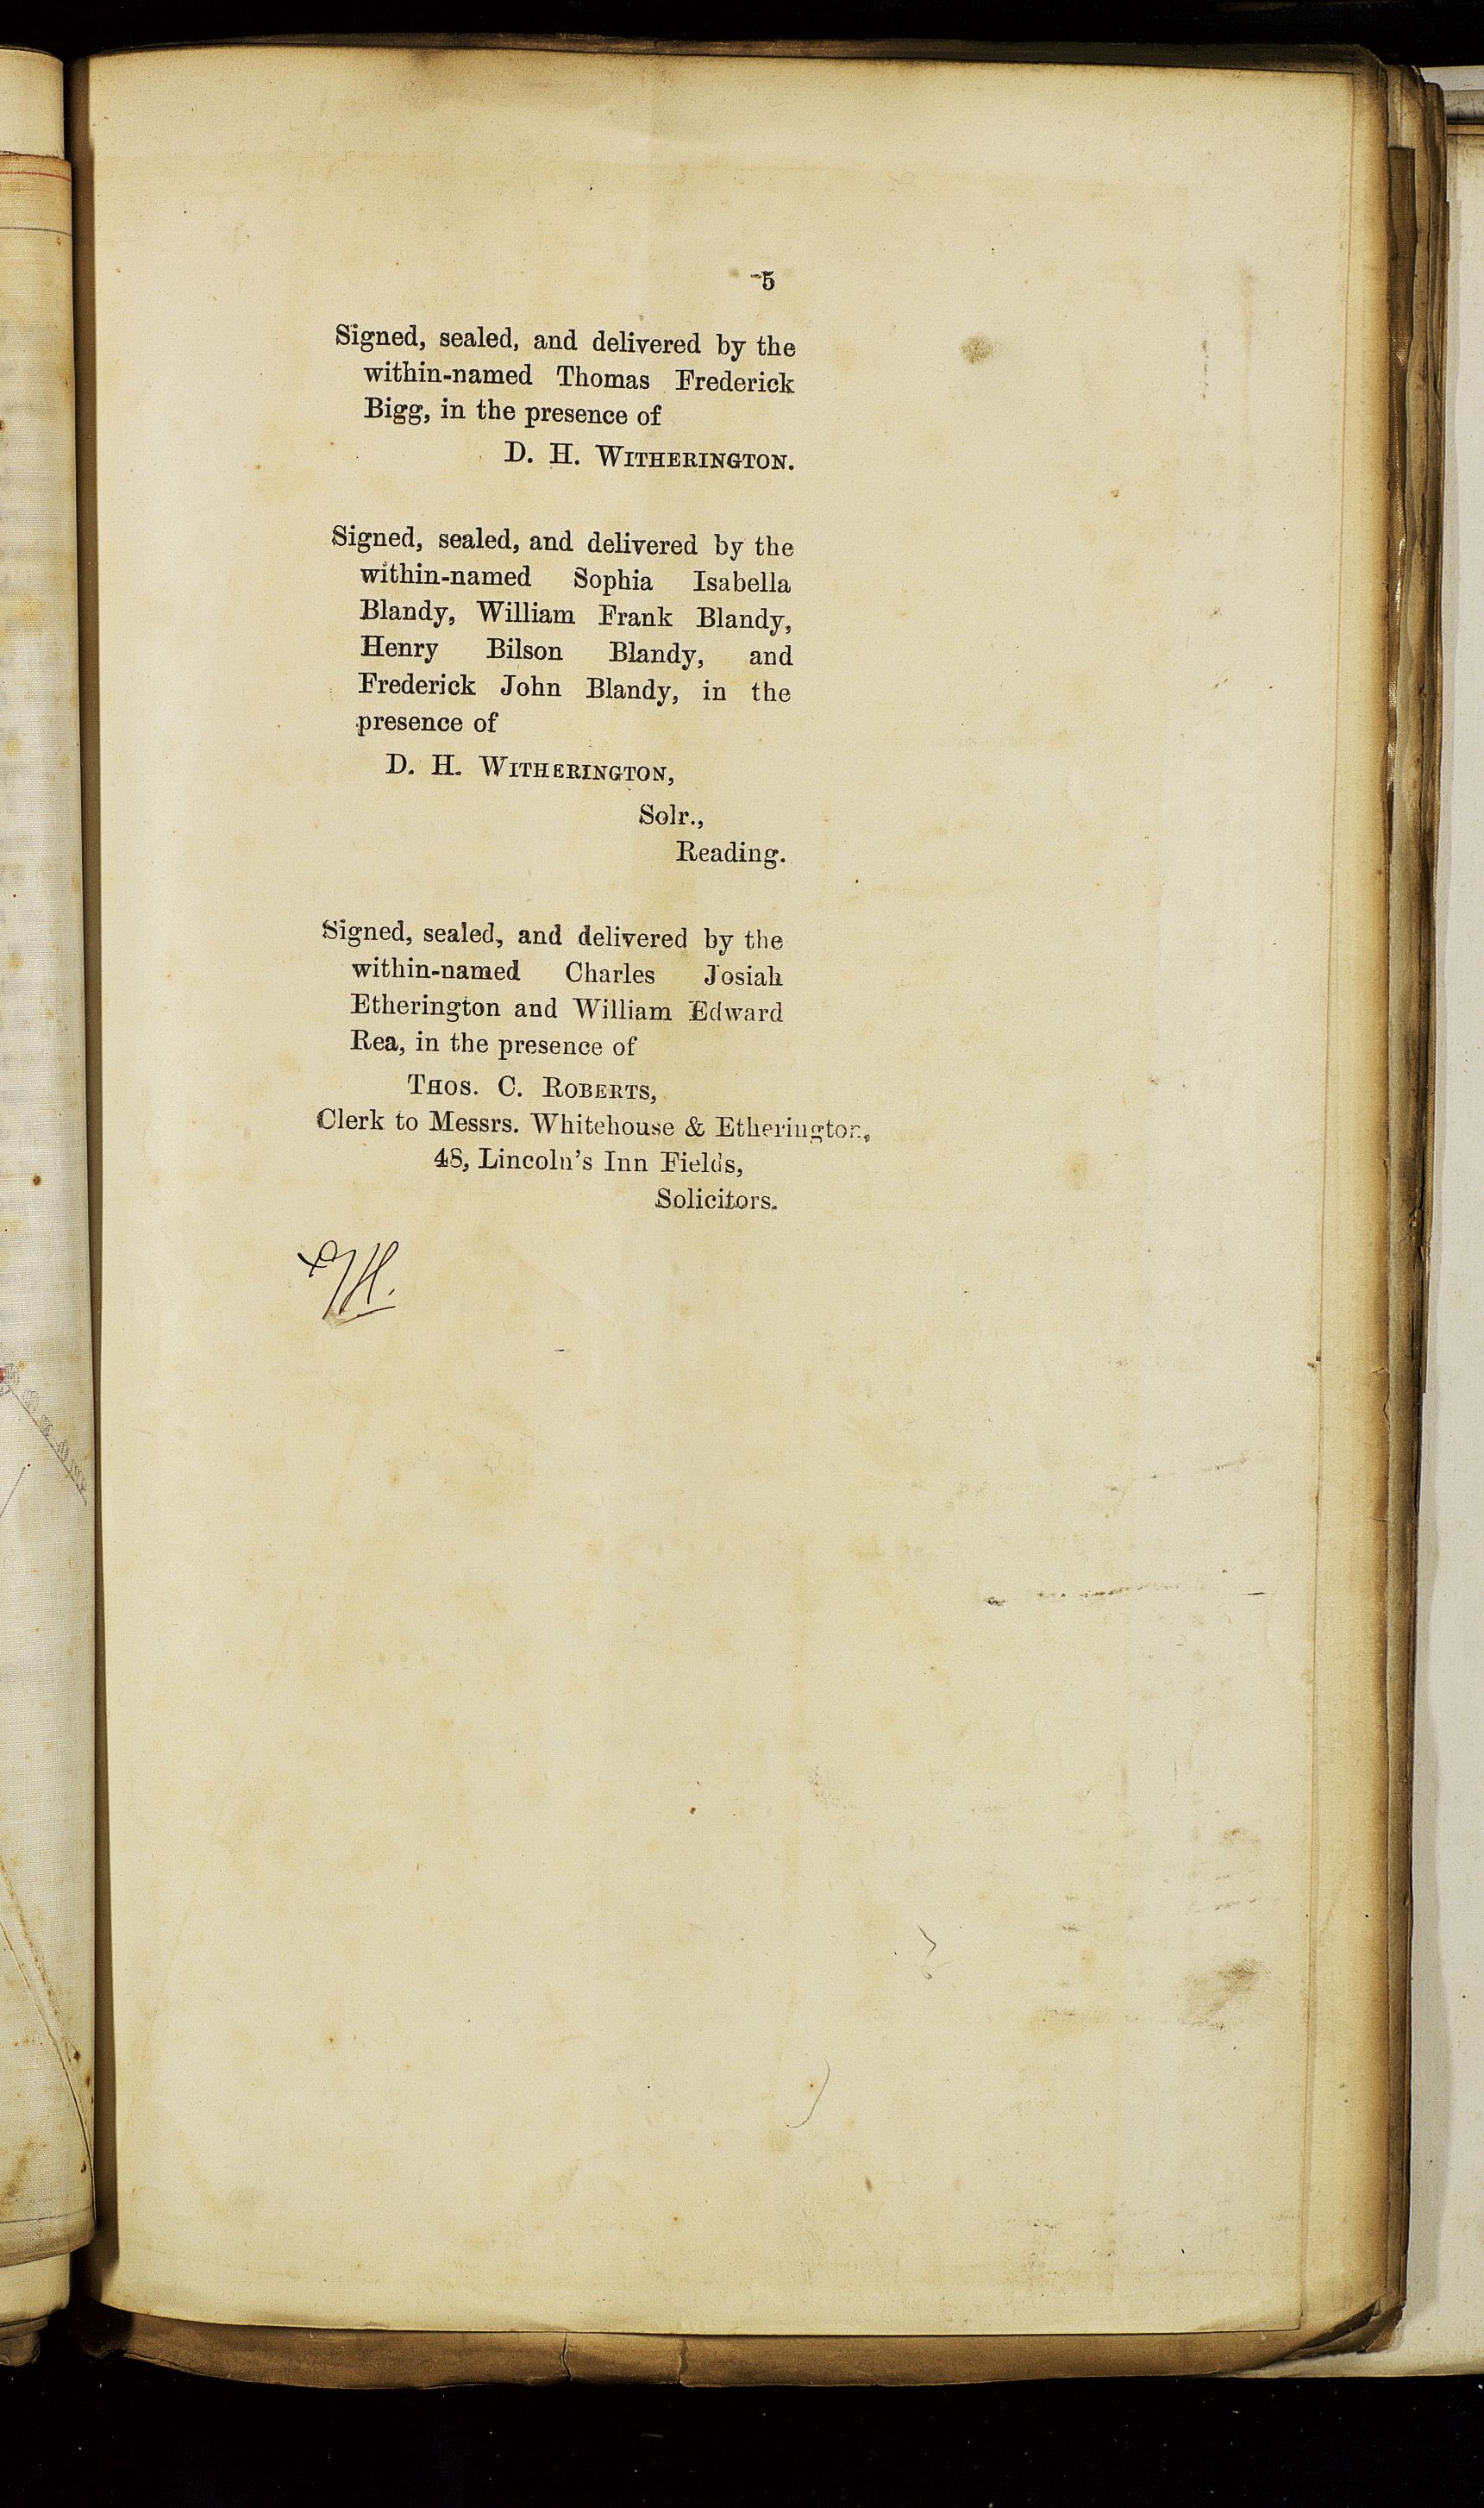 5
Signed, sealed, and delivered by the
within-named Thomas Frederick
Bigg, in the presence of
D. H. WITHERINGTON.
Signed, sealed, and delivered by the
within-named Sophia Isabella
Blandy, William Frank Blandy,
Henry Bilson Blandy, and
Frederick John Blandy, in the
presence of
D. H. WITHERINGTON,
Solr.,
Reading.
Signed, sealed, and delivered by the
within-named Charles Josiah
Etherington and William Edward
Rea, in the presence of
THOS. C. ROBERTS,
Clerk to Messrs. Whitehouse & Etherington,
48, Lincoln's Inn Fields,
Solicitors.